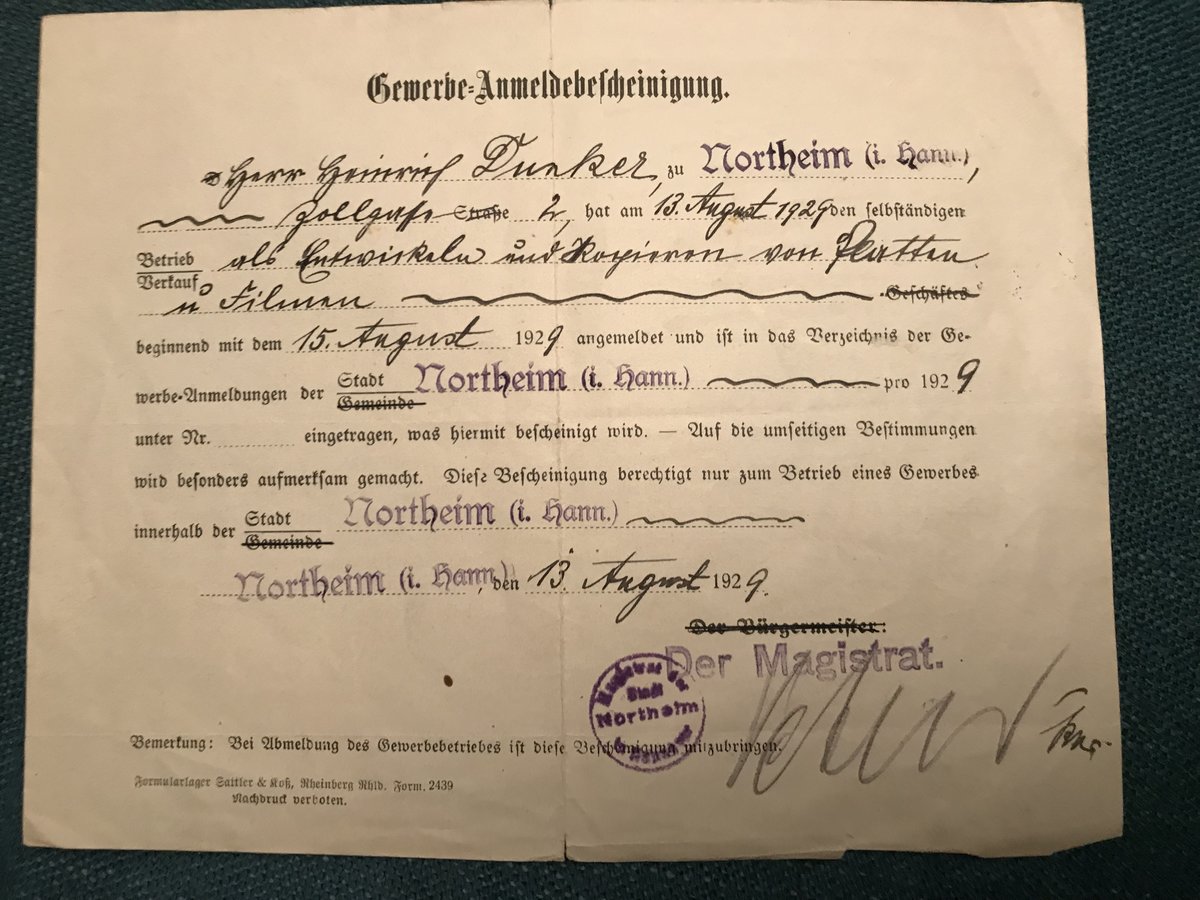 Gewerbe-Anmeldebescheinigung.
Herr Heinrich Dunker, zu Northeim (i. Hann.),
Zollgasse Straße 2, hat am 13. August 1929 den selbständigen
Betrieb
Verkauf
als Entwickeln und Kopieren von Platten
u Filmen Geschäftes
beginnend mit dem 15. August 1929 angemeldet und ist in das Verzeichnis der Ge-
werbe-Anmeldungen der Stadt Northeim (i. Hann.) pro 1929
Gemeinde
unter Nr. eingetragen, was hiermit bescheinigt wird. — Auf die umseitigen Bestimmungen
wird besonders aufmerksam gemacht. Diese Bescheinigung berechtigt nur zum Betrieb eines Gewerbes
innerhalb der Stadt Northeim (i. Hann.)
Gemeinde
Northeim (i. Hann.), den 13. August 1929.
Der Bürgermeister:
Der Magistrat.
Magistrat der
Stadt
Northeim
Bemerkung: Bei Abmeldung des Gewerbebetriebes ist diese Bescheinigung mitzubringen.
Formularlager Sattler & Koß, Rheinberg Rhld. Form. 2439
Nachdruck verboten.